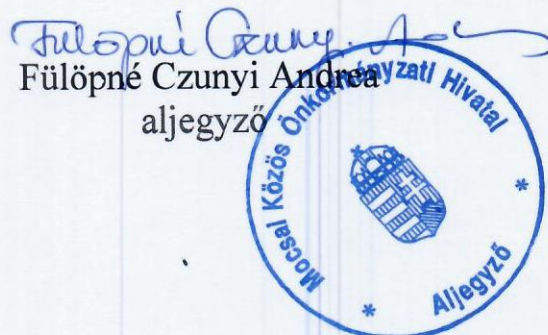 Fülöpné Czunyi Andrea
Fülöpné Czunyi Andrea
aljegyző
Mocsai Közös Önkormányzati Hivatal
* Aljegyző *